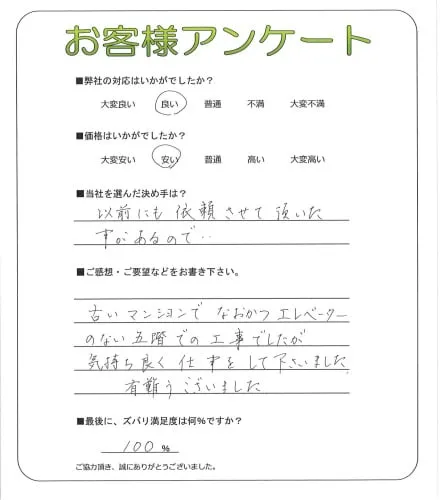 お客様アンケート
■弊社の対応はいかがでしたか？
大変良い 良い 普通 不満 大変不満
■価格はいかがでしたか？
大変安い 安い 普通 高い 大変高い
■当社を選んだ決め手は？
以前にも依頼させて頂いた
事があるので‥
■ご感想・ご要望などをお書き下さい。
古いマンションで なおかつエレベーター
のない五階での工事でしたが
気持ち良く仕事をして下さいました
有難うございました
■最後に、ズバリ満足度は何％ですか？
100 %
ご協力頂き、誠にありがとうございました。